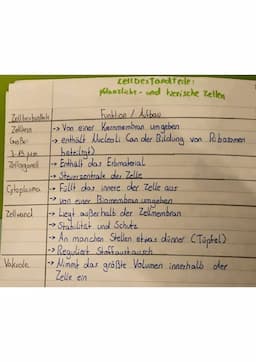 Zellbestandteile:
pflanzliche- und tierische Zellen
Zellbestandteile Funktion / Aufbau
Zellkern -> Von einer Kernmembran umgeben
Größe: -> enthält Nucleoli (an der Bildung von Ribosomen
5-25 µm beteiligt)
Zellorganell -> Enthält das Erbmaterial
-> Steuerzentrale der Zelle
Cytoplasma -> Füllt das innere der Zelle aus
-> von einer Biomembran umgeben
Zellwand -> Liegt außerhalb der Zellmembran
-> Stabilität und Schutz
-> An manchen Stellen etwas dünner (Tüpfel)
-> Reguliert Stoffaustausch
Vakuole -> Nimmt das größte Volumen innerhalb der
Zelle ein